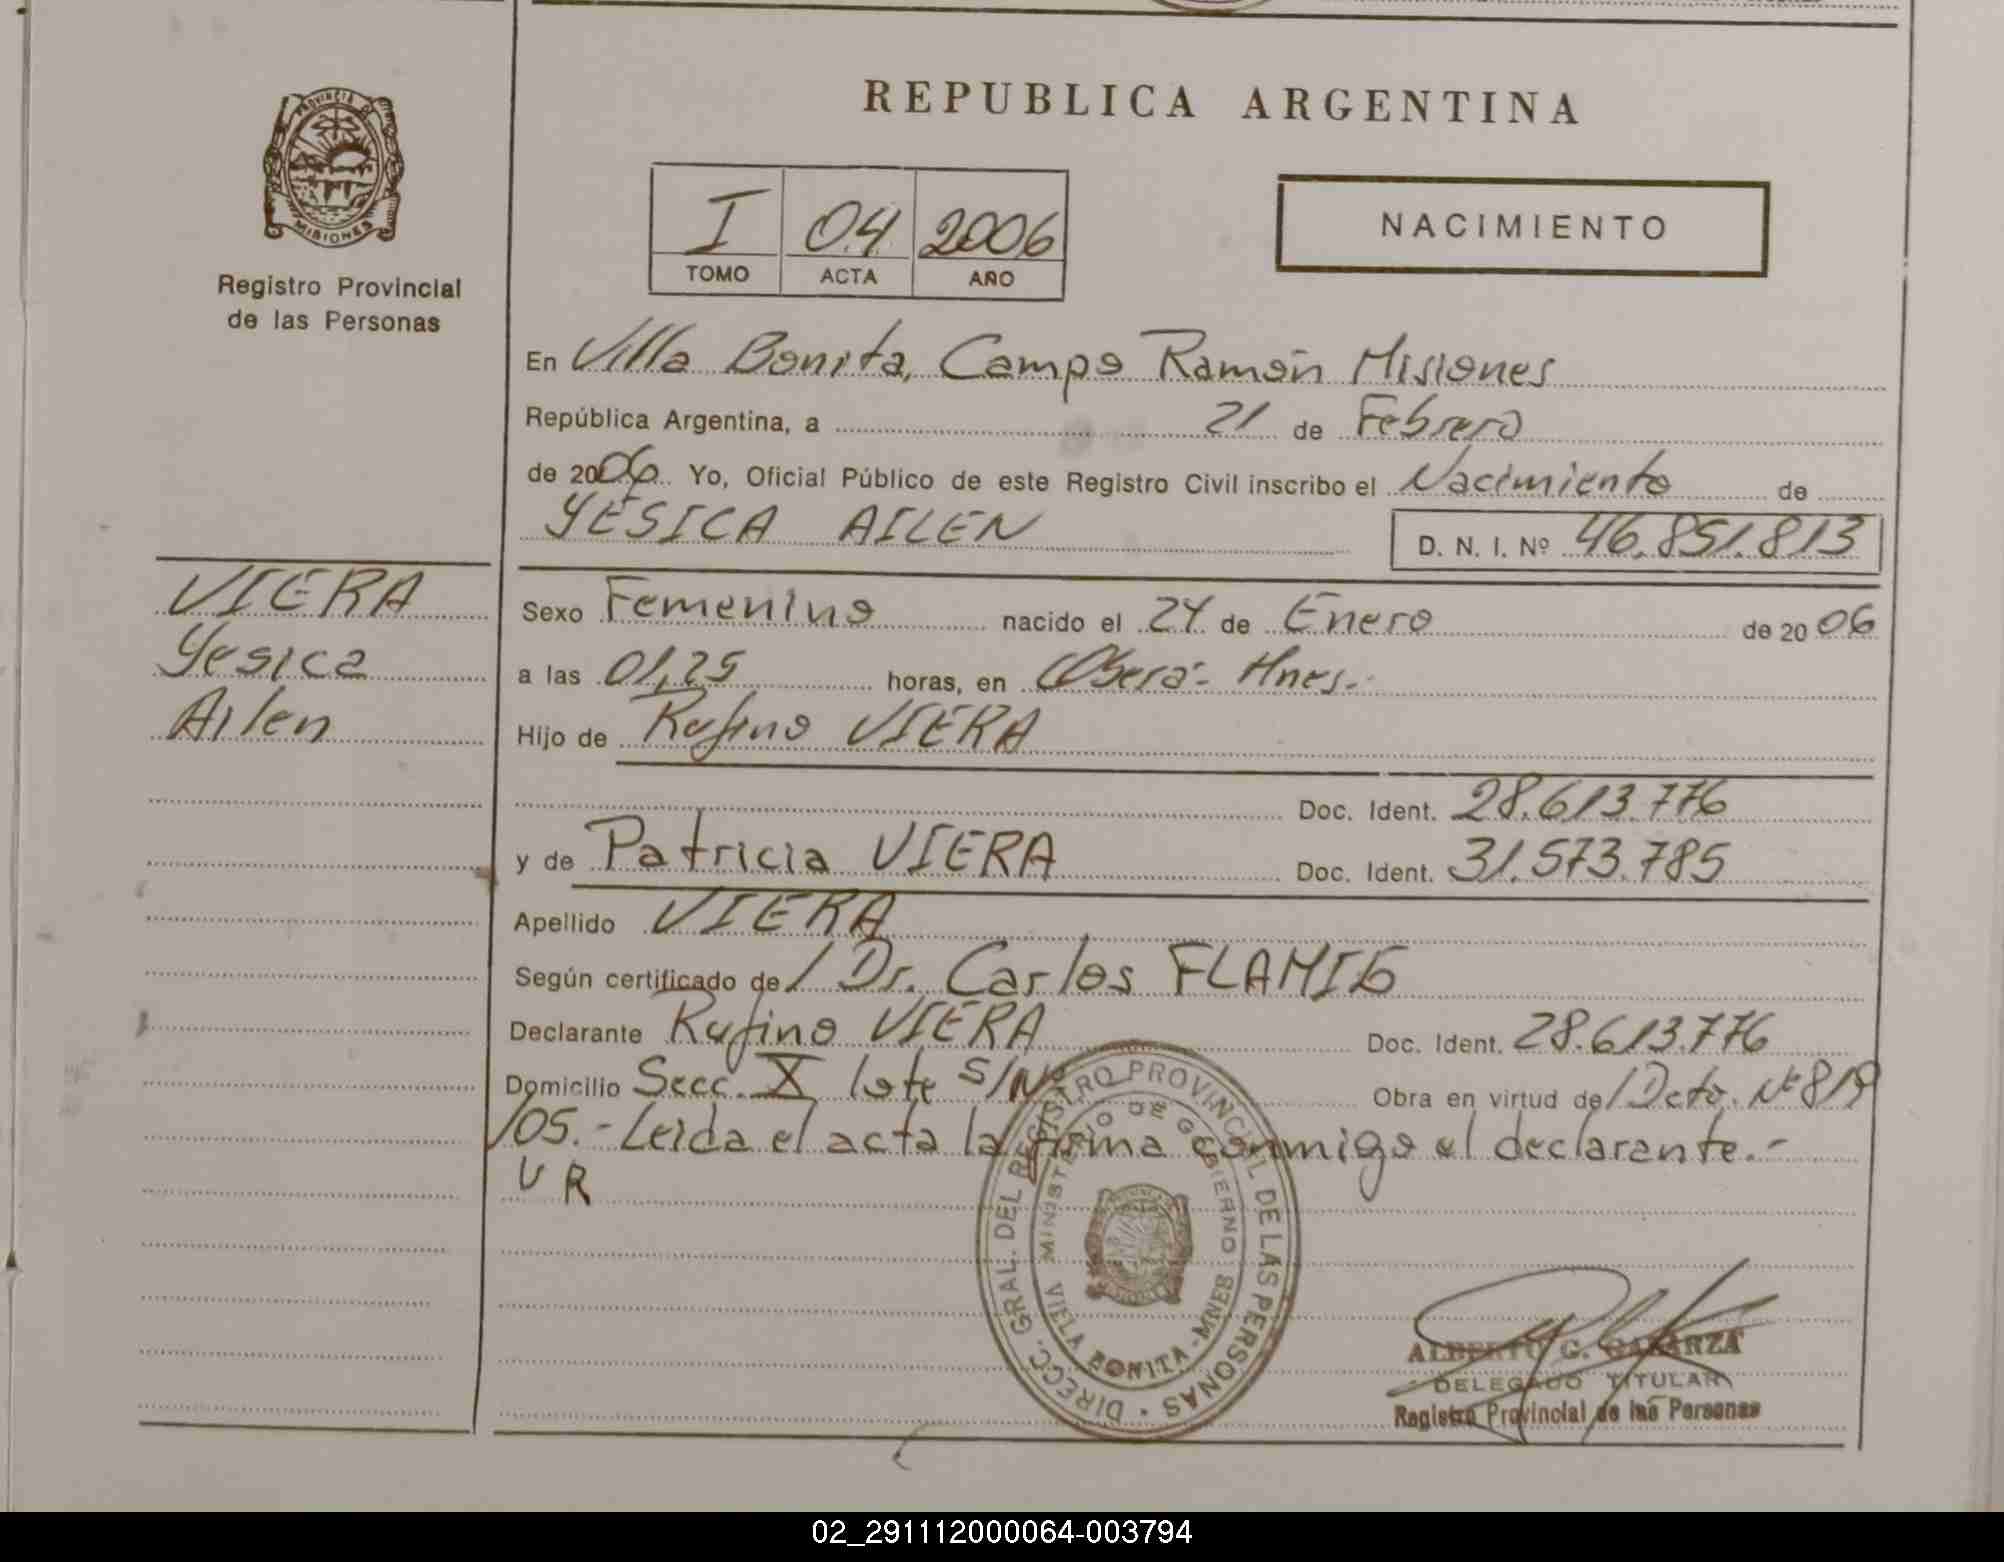 REPUBLICA ARGENTINA
PROVINCIA DE
MISIONES
Registro Provincial
de las Personas
I 04 2006
TOMO ACTA AÑO
NACIMIENTO
En Villa Bonita, Campo Ramón Misiones
República Argentina, a 21 de Febrero
de 2006 Yo, Oficial Público de este Registro Civil inscribo el Nacimiento de
YESICA AILEN D. N. I. Nº 46.851.813
VIERA
Yesica
Ailen
Sexo Femenino nacido el 24 de Enero de 2006
a las 01,25 horas, en Oberá- Mnes.-
Hijo de Rufino VIERA
Doc. Ident. 28.613.776
y de Patricia VIERA Doc. Ident. 31.573.785
Apellido VIERA
Según certificado de / Dr. Carlos FLAMIG
Declarante Rufino VIERA Doc. Ident. 28.613.776
Domicilio Secc. X lote S/Nº Obra en virtud de / Dcto. Nº 819
/05.- Leida el acta la firma conmigo el declarante.-
V R
DIRECC. GRAL. DEL REGISTRO PROVINCIAL DE LAS PERSONAS
MINISTERIO DE GOBIERNO
BONITA - MNES
ALBERTO G. GALARZA
DELEGADO TITULAR
Registro Provincial de las Personas
02_291112000064-003794